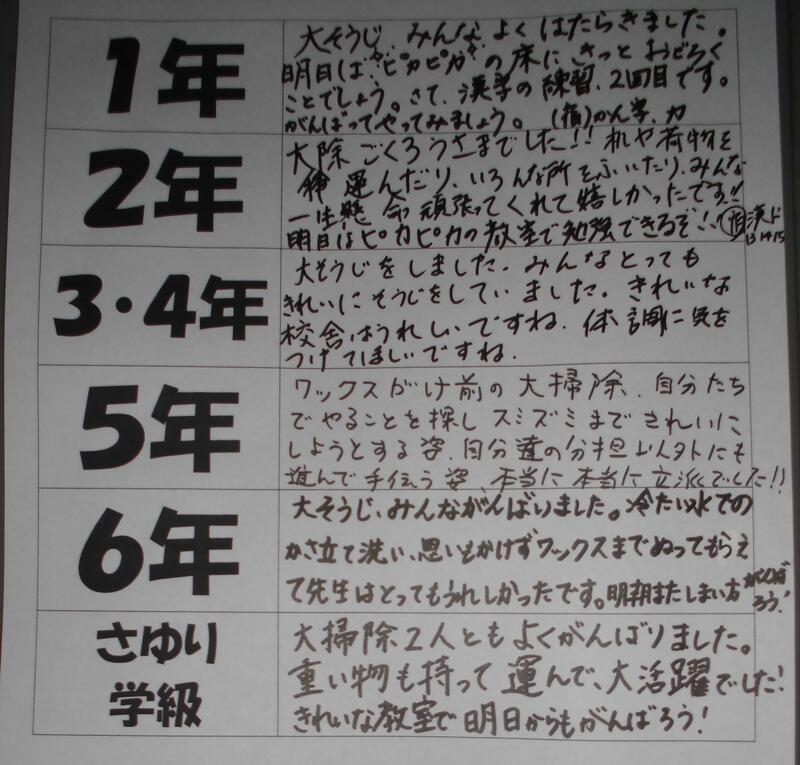 1年
大そうじ、みんな、よくはたらきました。
明日は"ピカピカ"の床にきっとおどろく
ことでしょう。さて、漢字の練習、2回目です。
がんばってやってみましょう。(宿)かん字、カ
2年
大除ごくろうさまでした!!机や荷物を
運んだり、いろんな所をふいたり、みんな
一生懸命頑張ってくれて嬉しかったです!!
明日はピカピカの教室で勉強できるぞ!!宿漢ド
13 14 15
3・4年
大そうじをしました。みんなとっても
きれいにそうじをしていました。きれいな
校舎はうれしいですね。体調に気を
つけてほしいですね。
5年
ワックスがけ前の大掃除、自分たち
でやることを探しスミズミまできれいに
しようとする姿、自分達の分担以外にも
進んで手伝う姿、本当に本当に立派でした!!
6年
大そうじ、みんながんばりました。冷たい水での
かさ立て洗い、思いもかけずワックスまでぬってもらえ
て先生はとってもうれしかったです。明朝またしまい方がんば
ろう!
さゆり
学級
大掃除2人ともよくがんばりました。
重い物も持って運んで、大活躍でした!
きれいな教室で明日からもがんばろう!